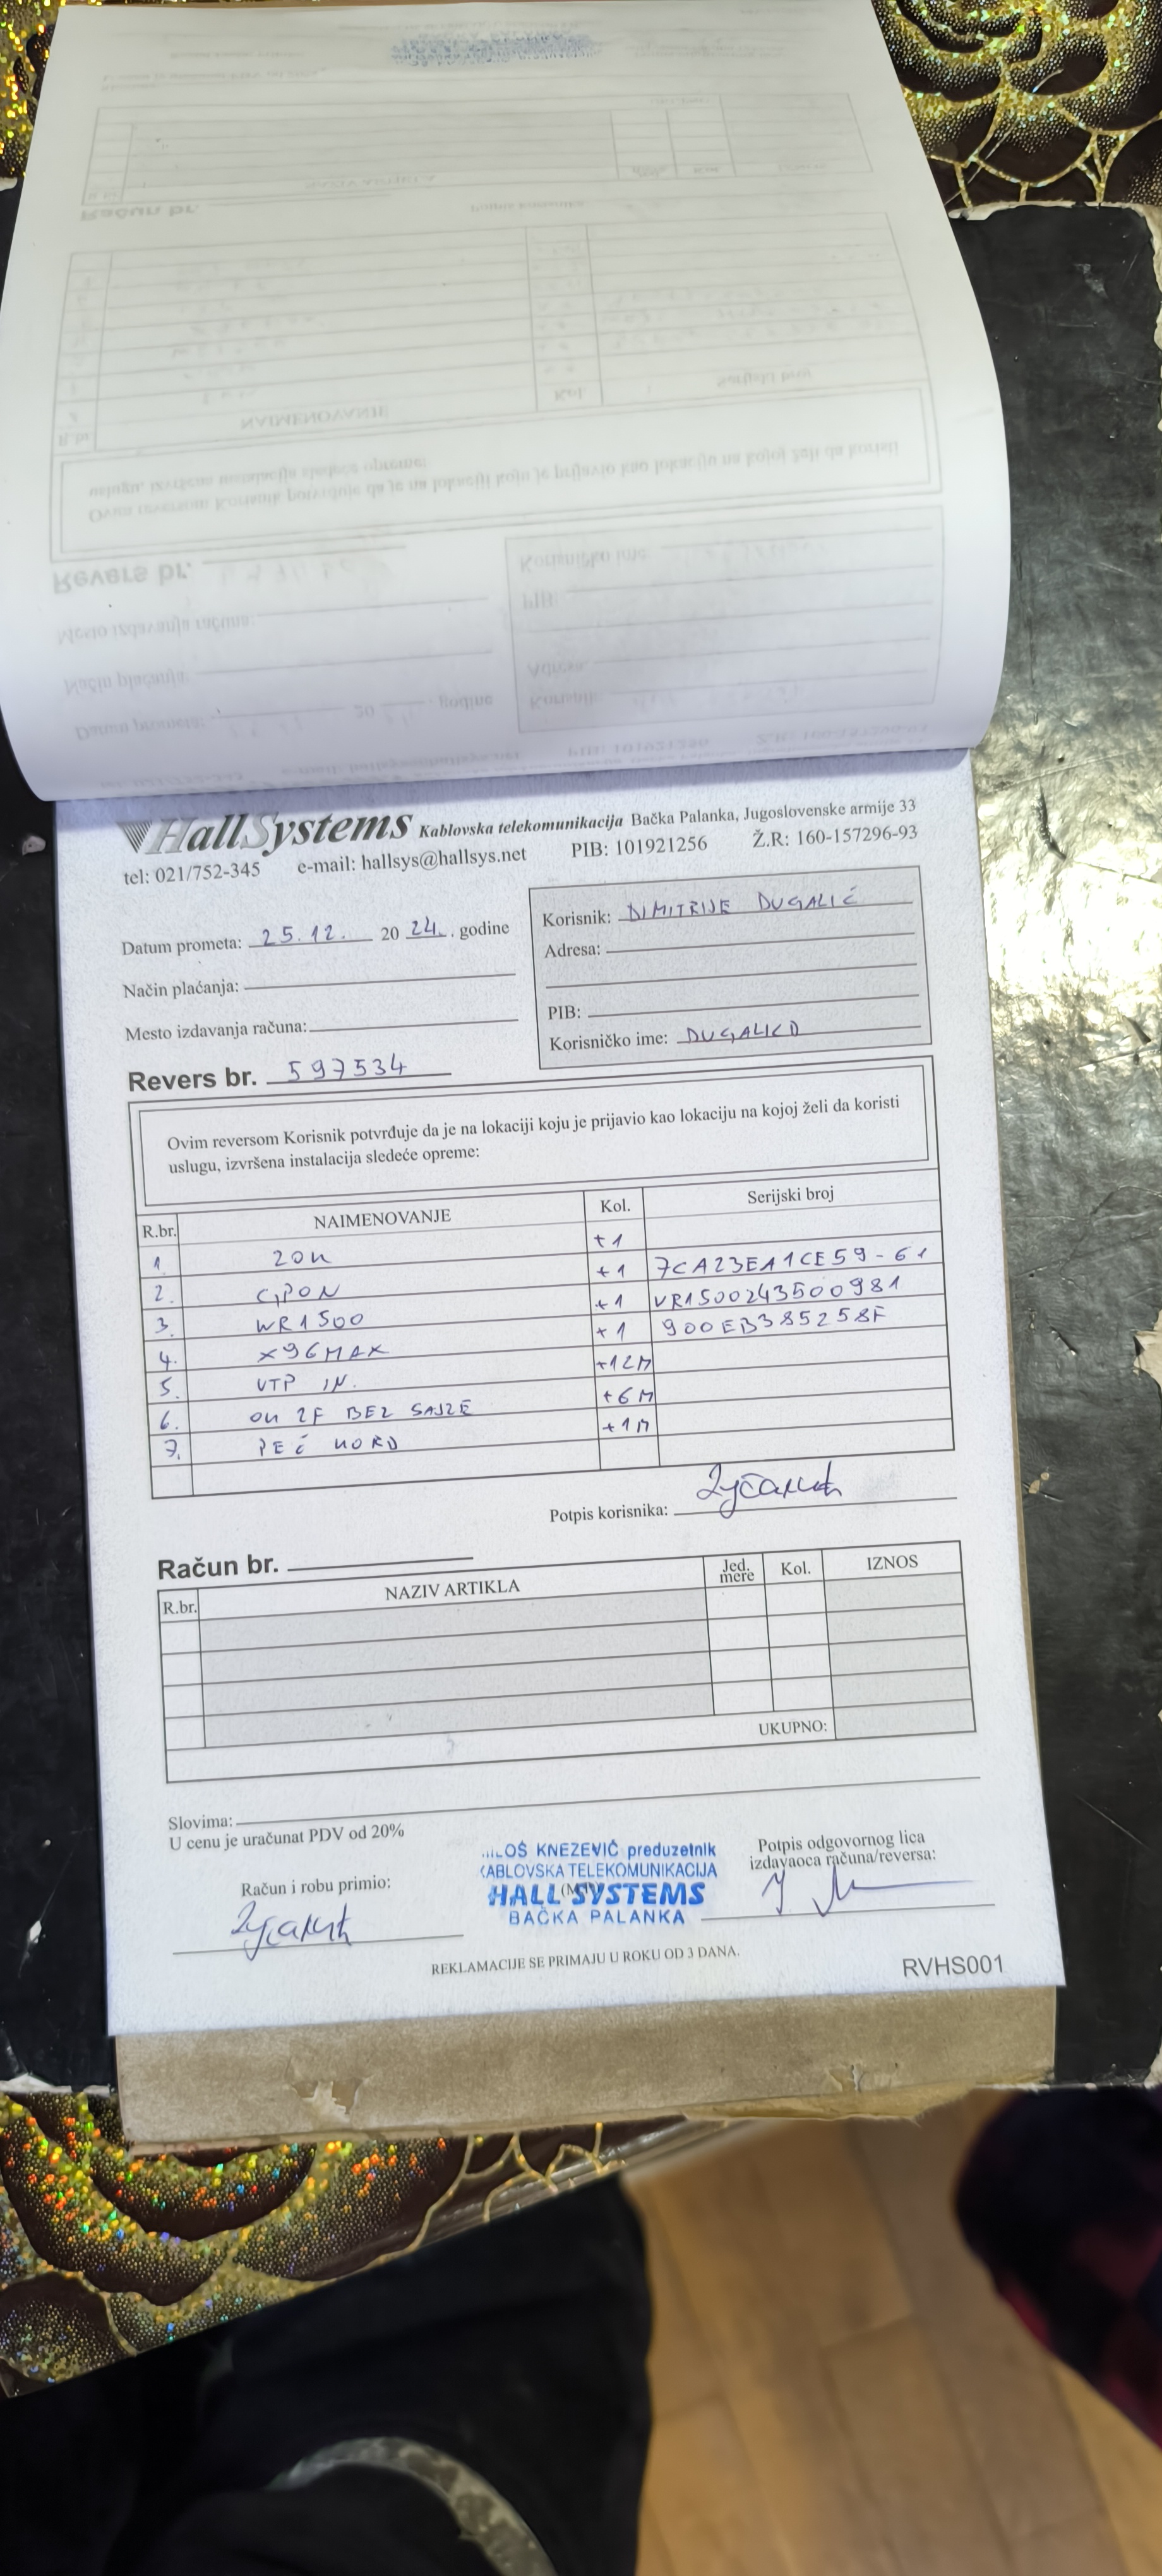 HallSystems Kablovska telekomunikacija Bačka Palanka, Jugoslovenske armije 33
tel: 021/752-345 e-mail: hallsys@hallsys.net PIB: 101921256 Ž.R: 160-157296-93
Datum prometa: 25.12. 20 24. . godine
Način plaćanja:
Mesto izdavanja računa:
Korisnik: DIMITRIJE DUGALIĆ
Adresa:
PIB:
Korisničko ime: DUGALICD
Revers br. 597534
Ovim reversom Korisnik potvrđuje da je na lokaciji koju je prijavio kao lokaciju na kojoj želi da koristi
uslugu, izvršena instalacija sledeće opreme:
R.br. NAIMENOVANJE Kol. Serijski broj
1. ZON +1
2. GPON +1 7CA23EA1CE59-61
3. WR1500 +1 VR1500243500981
4. X96MAX +1 900EB385258F
5. UTP IN. +12M
6. ON 2F BEZ SAJLE +6M
7. PEČ NORD +1M
Potpis korisnika:
Račun br.
R.br. NAZIV ARTIKLA Jed. mere Kol. IZNOS
UKUPNO:
Slovima:
U cenu je uračunat PDV od 20%
Račun i robu primio:
OŠ KNEZEVIČ preduzetnik
KABLOVSKA TELEKOMUNIKACIJA
HALL SYSTEMS
BAČKA PALANKA
Potpis odgovornog lica
izdavaoca računa/reversa:
REKLAMACIJE SE PRIMAJU U ROKU OD 3 DANA.
RVHS001